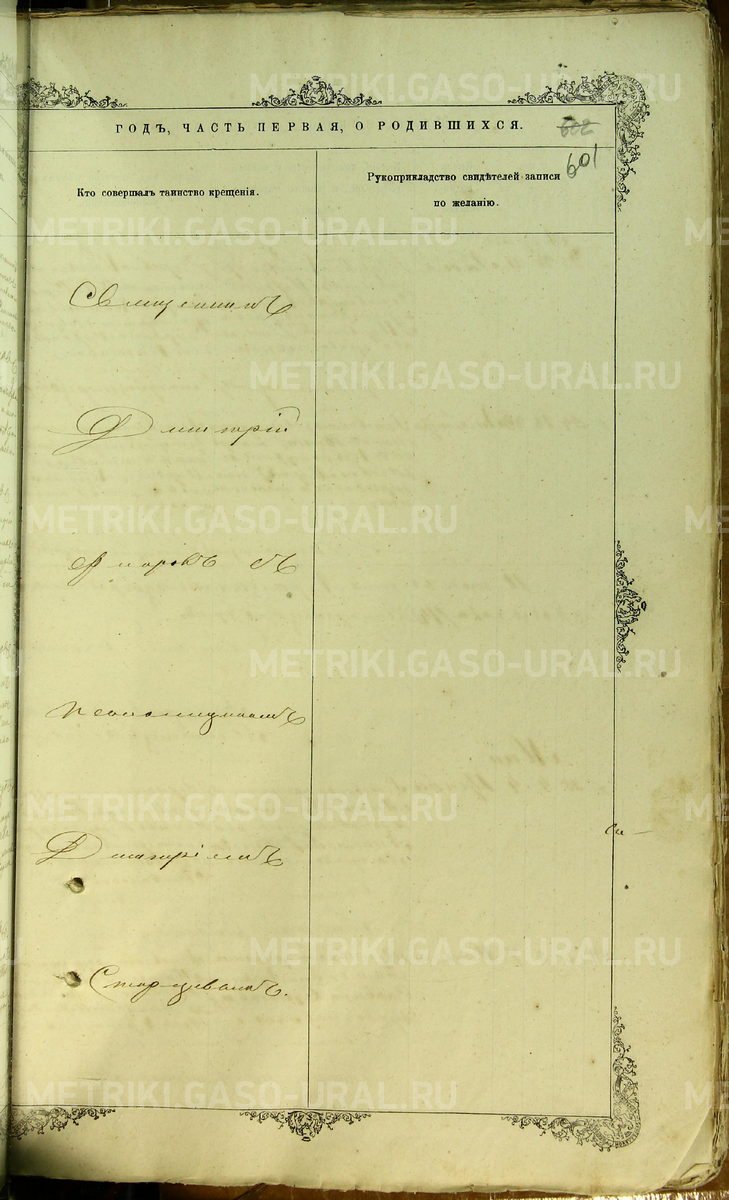 METRIKI.GASO-URAL.RU
ГОДЪ, ЧАСТЬ ПЕРВАЯ, О РОДИВШИХСЯ.
602
601
Кто совершалъ таинство крещенія.
Рукоприкладство свидѣтелей записи
по желанію.
METRIKI.GASO-URAL.RU
Священникъ
METRIKI.GASO-URAL.RU
Дмитрій
METRIKI.GASO-URAL.RU
съ
METRIKI.GASO-URAL.RU
псаломщикомъ
METRIKI.GASO-URAL.RU
Дмитріемъ
METRIKI.GASO-URAL.RU
Старцевымъ.
METRIKI.GASO-URAL.RU